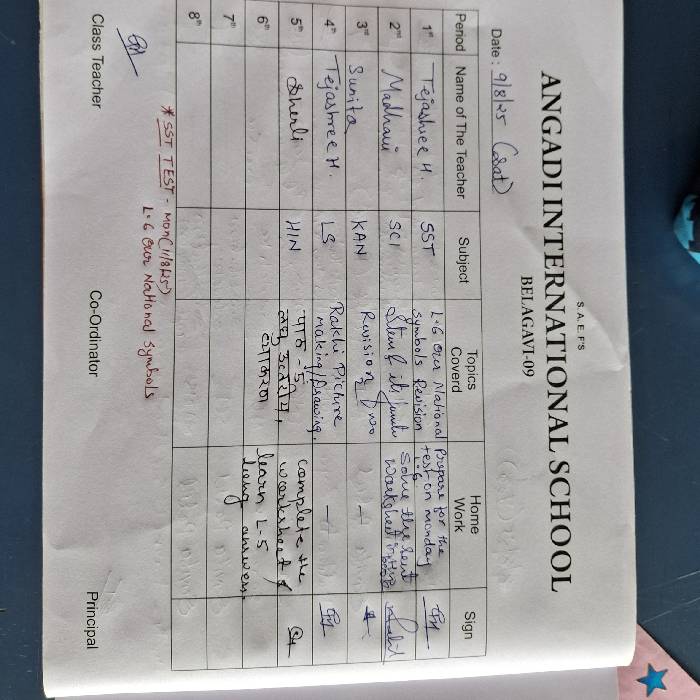 S.A.E.F'S
ANGADI INTERNATIONAL SCHOOL
BELAGAVI-09
Date : 9/8/25 (Sat)
Period Name of The Teacher Subject Topics Coverd Home Work Sign
1st Tejashree H. SST L-6 Our National Symbols Revision Prepare for the test on monday L-6
2nd Madhavi SCI Stem & its Solve the sent worksheet in
3rd Sunita KAN Revision
4th Tejashree H. LS Rakhi Picture making/drawing.
5th Sherli HIN पाठ - 5 लघु उत्तरीय, व्याकरण complete the worksheet & learn L-5 long answers.
6th
7th
8th
Class Teacher Co-Ordinator Principal
* SST TEST - Mon (11/8/25)
L-6 Our National Symbols